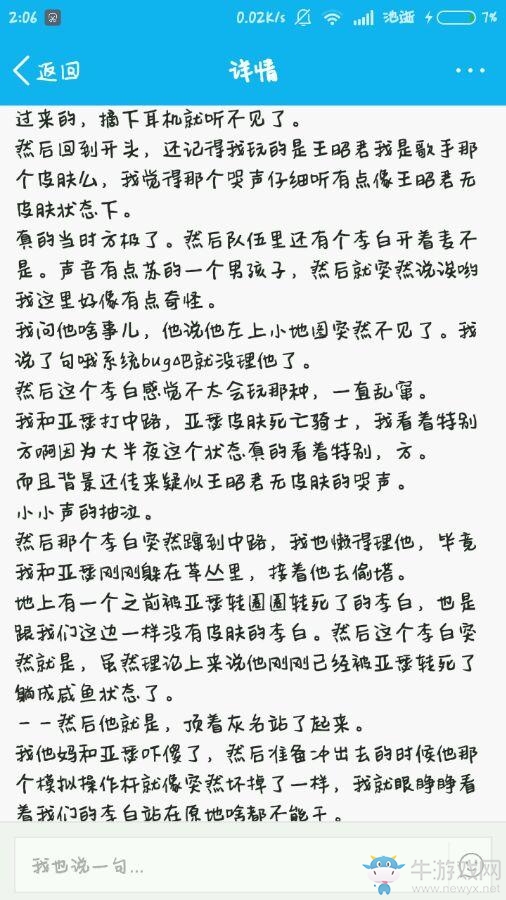 2:06
0.02K/s
池逝
7%
返回
详情
过来的，摘下耳机就听不见了。
然后回到开头，还记得我玩的是王昭君我是歌手那
个皮肤么，我觉得那个哭声仔细听有点像王昭君无
皮肤状态下。
真的当时方极了。然后队伍里还有个李白开着麦不
是。声音有点苏的一个男孩子，然后就突然说诶哟
我这里好像有点奇怪。
我问他啥事儿，他说他左上小地图突然不见了。我
说了句哦系统bug吧就没理他了。
然后这个李白感觉不太会玩那种，一直乱窜。
我和亚瑟打中路，亚瑟皮肤死亡骑士，我看着特别
方啊因为大半夜这个状态真的看着特别，方。
而且背景还传来疑似王昭君无皮肤的哭声。
小小声的抽泣。
然后那个李白突然蹿到中路，我也懒得理他，毕竟
我和亚瑟刚刚躲在草丛里，接着他去偷塔。
地上有一个之前被亚瑟转圈圈转死了的李白，也是
跟我们这边一样没有皮肤的李白。然后这个李白突
然就是，虽然理论上来说他刚刚已经被亚瑟转死了
躺成咸鱼状态了。
－－然后他就是，顶着灰名站了起来。
我他妈和亚瑟吓傻了，然后准备冲出去的时候他那
个模拟操作杆就像突然坏掉了一样，我就眼睁睁看
着我们的李白站在原地啥都不能干。
我也说一句...
牛游戏网
www.newyx.net